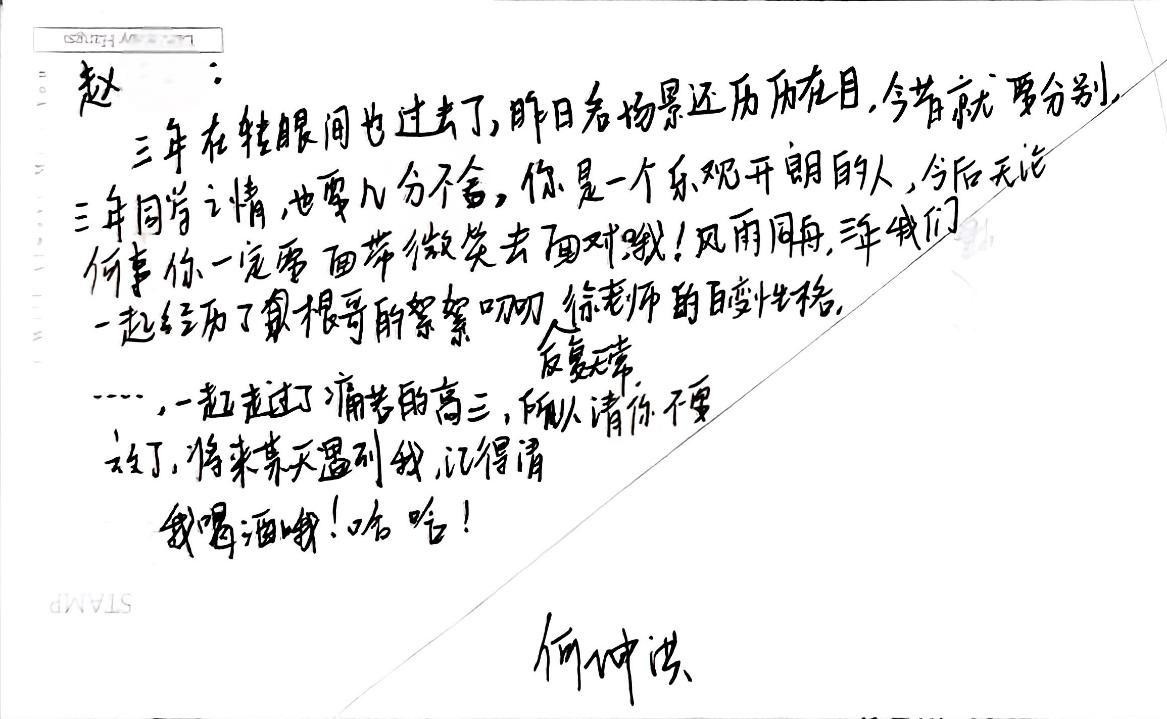 赵 :
三年在转眼间也过去了,昨日各场景还历历在目,今昔就要分别,
三年同学之情,也要几分不舍,你是一个乐观开朗的人,今后无论
何事你一定要面带微笑去面对哦!风雨同舟,三年我们
一起经历了根哥的絮絮叨叨,徐老师的百变性格,
反复无常
……,一起走过了痛苦的高三,所以请你不要
忘了,将来某天遇到我,记得请
我喝酒哦!哈哈!
STAMP
何坤洪